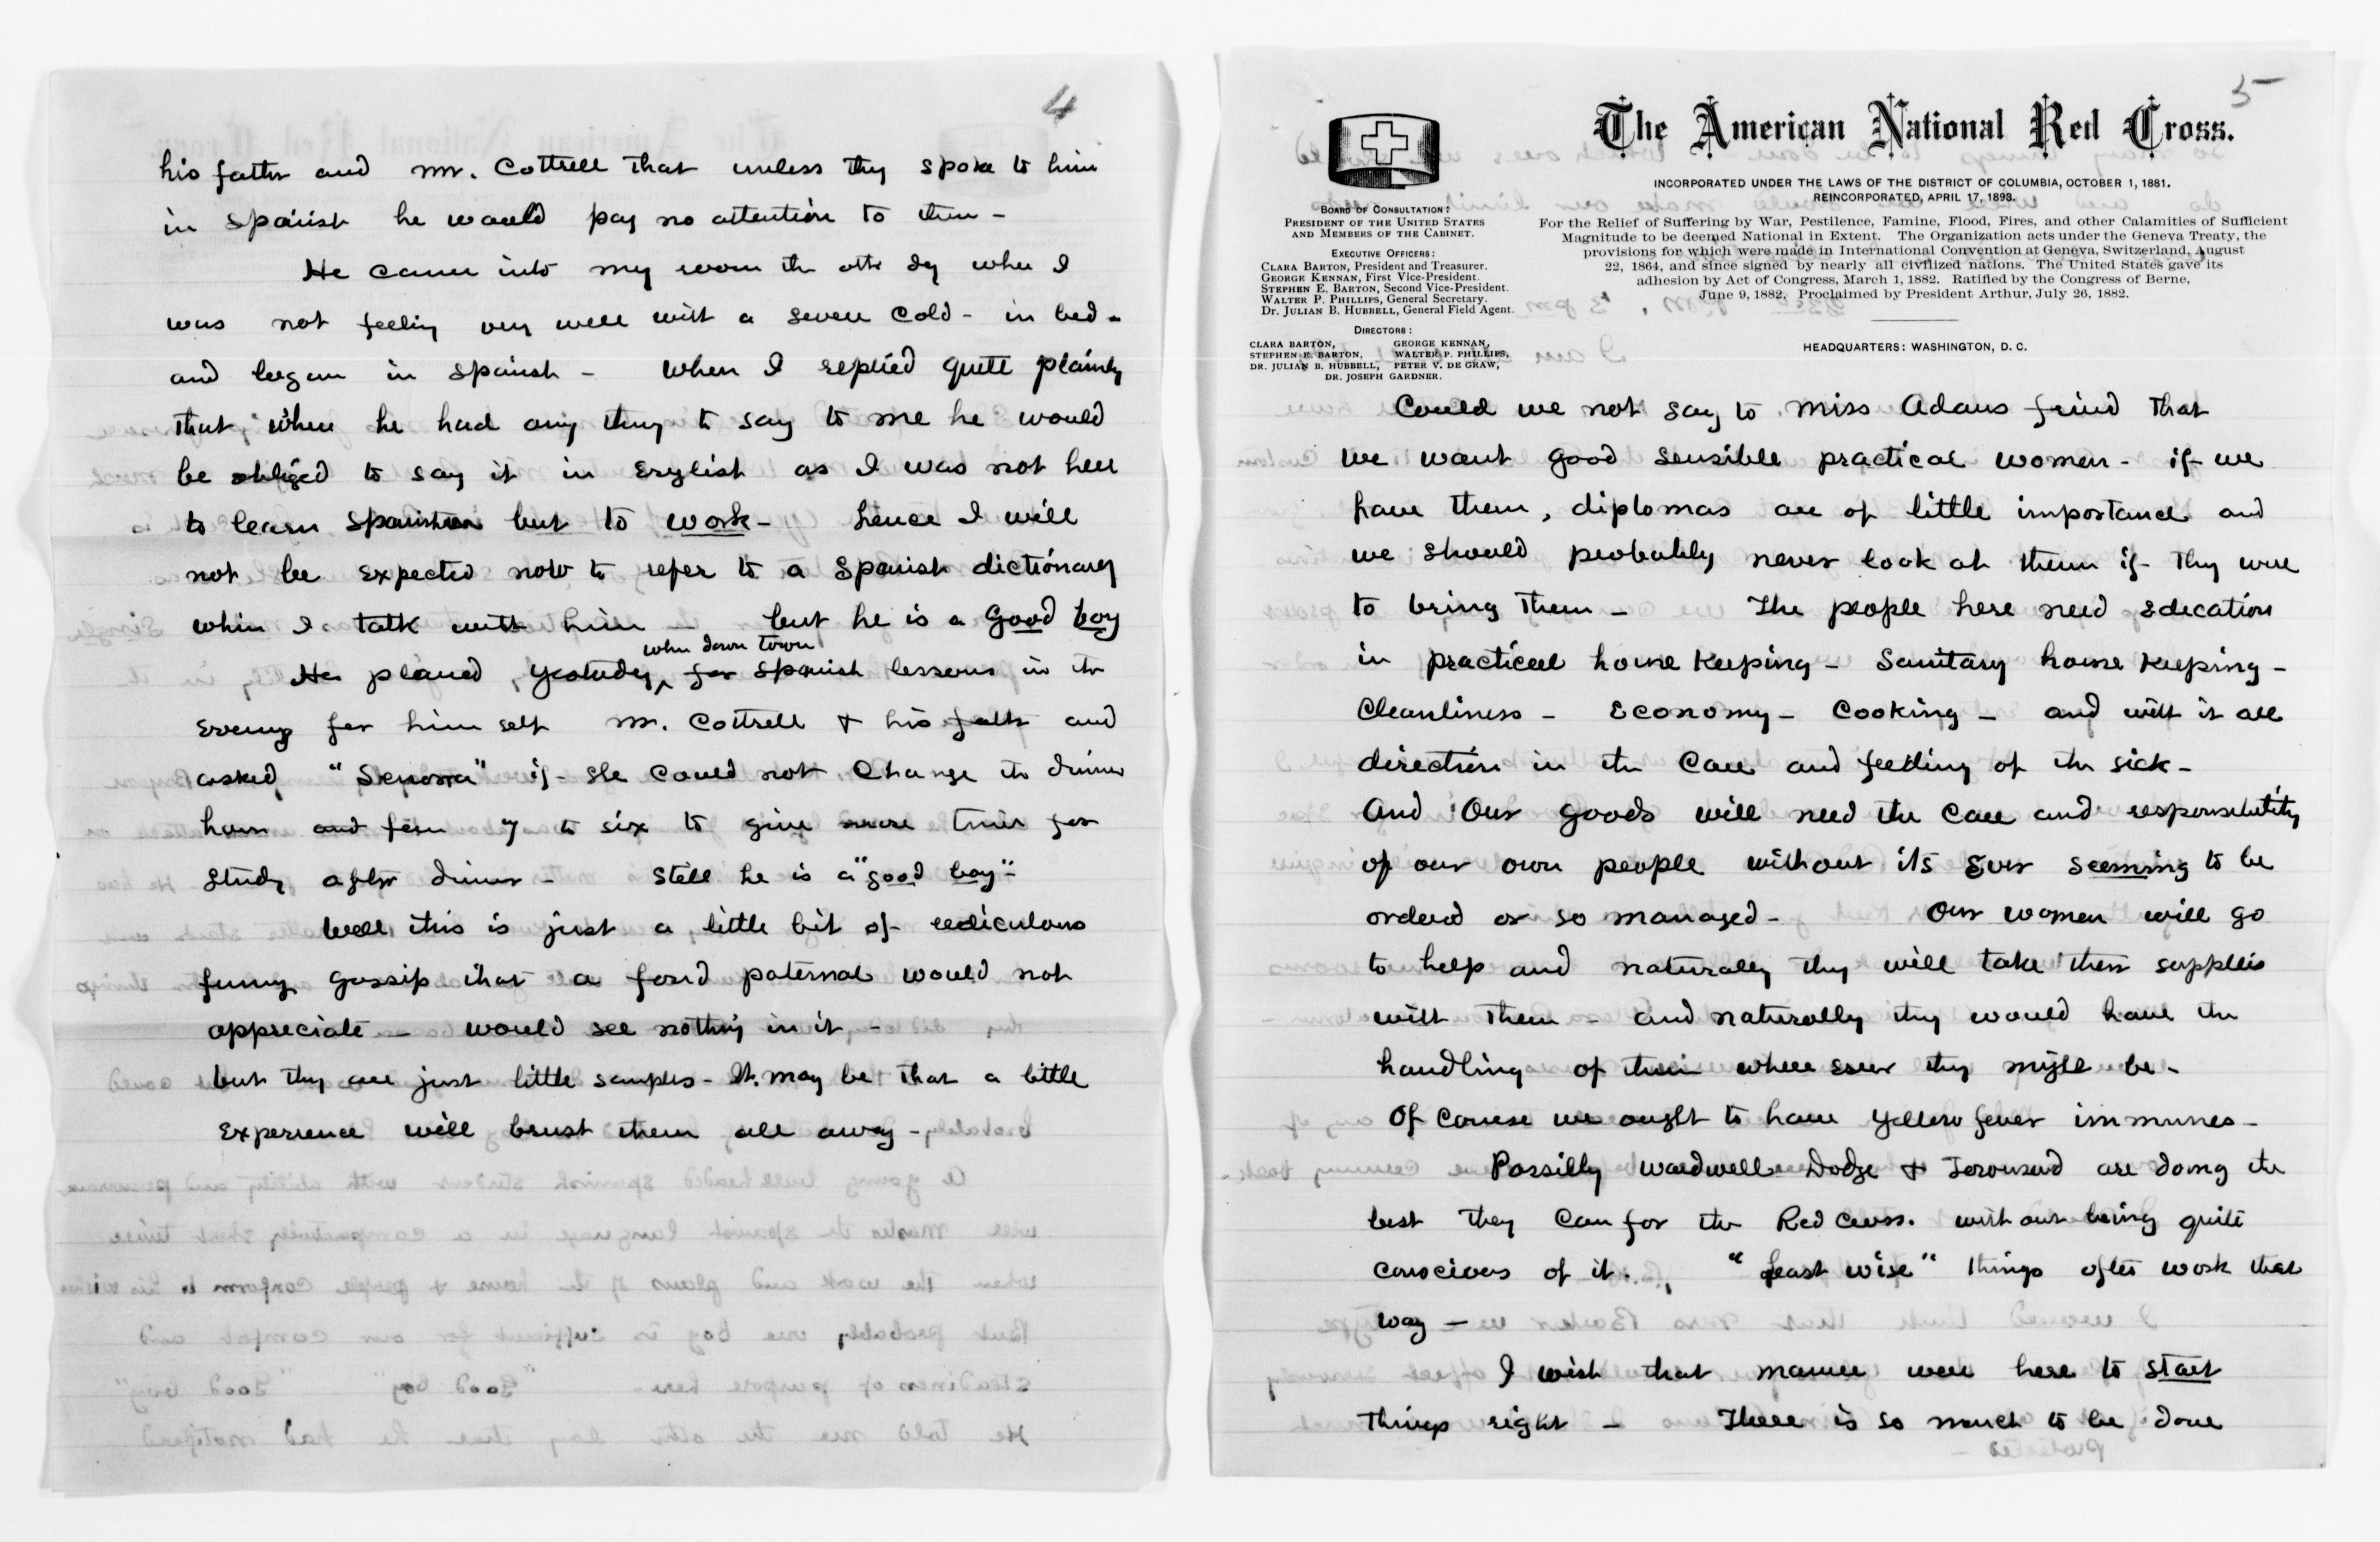 4
his father and Mr. Cottrell that unless they spoke to him
in Spanish he would pay no attention to them -
He came into my room the other day when I
was not feeling very well with a severe cold - in bed -
and began in Spanish - When I replied quite plainly
that, when he had any thing to say to me he would
be obliged to say it in English as I was not here
to learn Spanish but to work - hence I will
not be expected now to refer to a Spanish dictionary
when I talk with him - but he is a good boy
when down town
He planed, yesterday, for Spanish lessons in the
evening for him self Mr. Cottrell & his father and
asked "Senora" if she could not change the dinner
hour and from 7 to six to give more time for
study after dinner - Still he is a "good boy" -
Well this is just a little bit of rediculous
funny gossip that a fond paternal would not
appreciate - would see nothing in it -
but they are just little samples - It may be that a little
experience will brust them all away -
5
The American National Red Cross.
INCORPORATED UNDER THE LAWS OF THE DISTRICT OF COLUMBIA, OCTOBER 1, 1881.
REINCORPORATED, APRIL 17, 1893.
For the Relief of Suffering by War, Pestilence, Famine, Flood, Fires, and other Calamities of Sufficient
Magnitude to be deemed National in Extent. The Organization acts under the Geneva Treaty, the
provisions for which were made in International Convention at Geneva, Switzerland, August
22, 1864, and since signed by nearly all civilized nations. The United States gave its
adhesion by Act of Congress, March 1, 1882. Ratified by the Congress of Berne,
June 9, 1882. Proclaimed by President Arthur, July 26, 1882.
HEADQUARTERS: WASHINGTON, D. C.
BOARD OF CONSULTATION:
PRESIDENT OF THE UNITED STATES
AND MEMBERS OF THE CABINET.
EXECUTIVE OFFICERS:
CLARA BARTON, President and Treasurer.
GEORGE KENNAN, First Vice-President.
STEPHEN E. BARTON, Second Vice-President.
WALTER P. PHILLIPS, General Secretary.
Dr. JULIAN B. HUBBELL, General Field Agent.
DIRECTORS:
CLARA BARTON, GEORGE KENNAN,
STEPHEN E. BARTON, WALTER P. PHILLIPS,
DR. JULIAN B. HUBBELL, PETER V. DE GRAW,
DR. JOSEPH GARDNER.
Could we not say to Miss Adams friend that
we want good sensible practical women - if we
have them, diplomas are of little importance and
we should probably never look at them if they were
to bring them - The people here need education
in practical house keeping - Sanitary house keeping -
Cleanliness - Economy - Cooking - and with it all
direction in the care and feeding of the sick -
And Our goods will need the care and responsibility
of our own people without its ever seeming to be
ordered or so managed - Our women will go
to help and naturally they will take their supplies
with them - and naturally they would have the
handling of them where ever they might be -
Of course we ought to have yellow fever immunes -
Possibly Wardwell Dodge & Townsend are doing the
best they can for the Red Cross. without being quite
conscious of it. "least wise" things often work that
way -
I wish that Mamie were here to start
things right - There is so much to be done